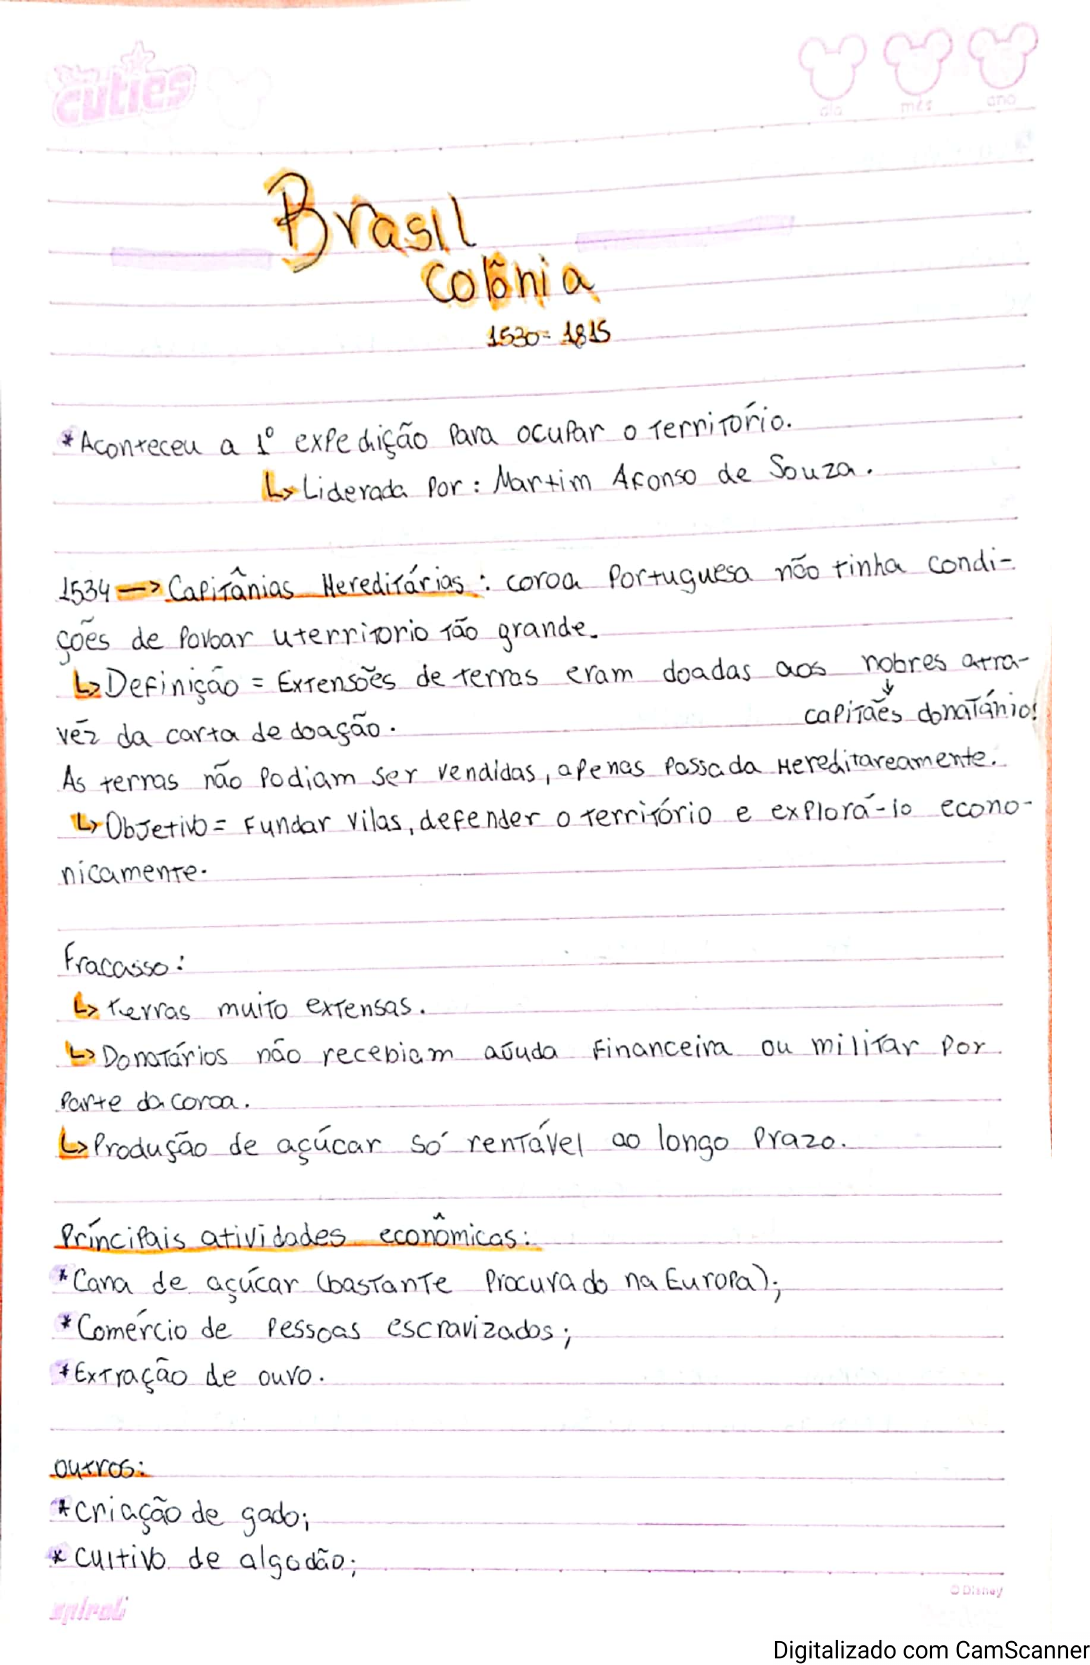 cuties
dia mês ano
Brasil
Colônia
1530= 1815
*Aconteceu a 1º expedição Para ocupar o território.
↳ Liderada por: Martim Afonso de Souza.
1534 → Capitânias Hereditárias: coroa Portuguesa não tinha condi-
ções de Povoar uterritorio tão grande.
↳ Definição = Extensões de terras eram doadas aos nobres atra-
↓
capitães donatários
véz da carta de doação.
As terras não podiam ser vendidas, apenas passada Hereditareamente.
↳ Objetivo = Fundar vilas, defender o território e explorá-lo econo-
nicamente.
Fracasso:
↳ terras muito extensas.
↳ Donatários não recebiam aJuda Financeira ou militar por
parte da coroa.
↳ Produção de açúcar só rentável ao longo Prazo.
Príncipais atividades econômicas:
*Cana de açúcar (bastante Procurado na Europa);
*Comércio de Pessoas escravizados;
*Extração de ouro.
outros:
*criação de gado;
*cultivo de algodão;
spiral
© Disney
Digitalizado com CamScanner